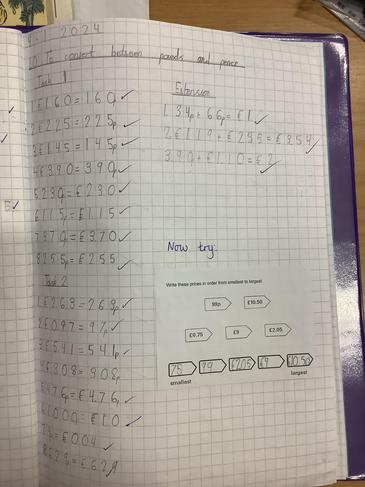 2024
LO To convert between pounds and pence
Task 1
1 £1.60 = 160p
2 £2.25 = 225p
3 £1.45 = 145p
4 £3.90 = 390p
5 230p = £2.30
6 115p = £1.15
7 370p = £3.70
8 255p = £2.55
Task 2
1 £2.69 = 269p
2 £0.97 = 97p
3 £5.41 = 541p
4 £9.08 = 908p
5 476p = £4.76
= £0.04
8 629p = £6.29
Extension
1 34p + 66p = £1
3 90p + £1.10 = £2
Now try:
Write these prices in order from smallest to largest.
99p £10.50
£0.75 £9 £2.05
75 99 £2.05 £9 £10.50
smallest largest